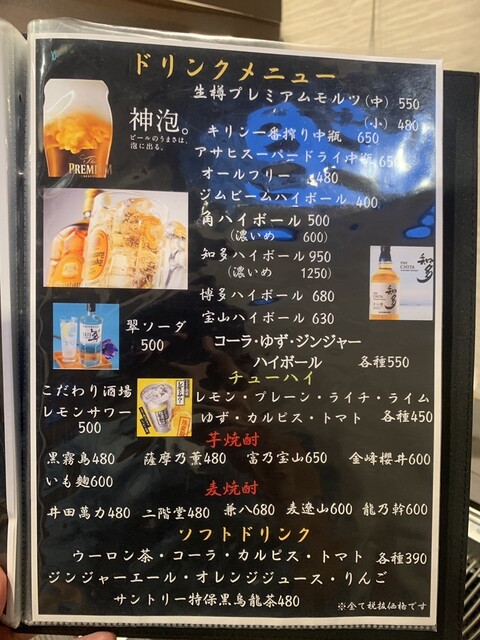 ドリンクメニュー
生樽プレミアムモルツ(中) 550
(小) 480
神泡。
ビールのうまさは、
泡に出る。
The
PREMIUM
キリン一番搾り中瓶 650
アサヒスーパードライ中瓶 650
オールフリー 480
ジムビームハイボール 400
角ハイボール 500
(濃いめ 600)
知多ハイボール 950
(濃いめ 1250)
THE
CHITA
知多
博多ハイボール 680
宝山ハイボール 630
翠ソーダ
500
翠
コーラ・ゆず・ジンジャー
ハイボール 各種550
チューハイ
こだわり酒場
レモンサワー
500
レモン・プレーン・ライチ・ライム
ゆず・カルピス・トマト 各種450
芋焼酎
黒霧島480 薩摩乃薫480 富乃宝山650 金峰櫻井600
いも麹600
麦焼酎
井田萬力480 二階堂480 兼八680 麦遼山600 龍乃幹600
ソフトドリンク
ウーロン茶・コーラ・カルピス・トマト 各種390
ジンジャーエール・オレンジジュース・りんご
サントリー特保黒烏龍茶480
※全て税抜価格です